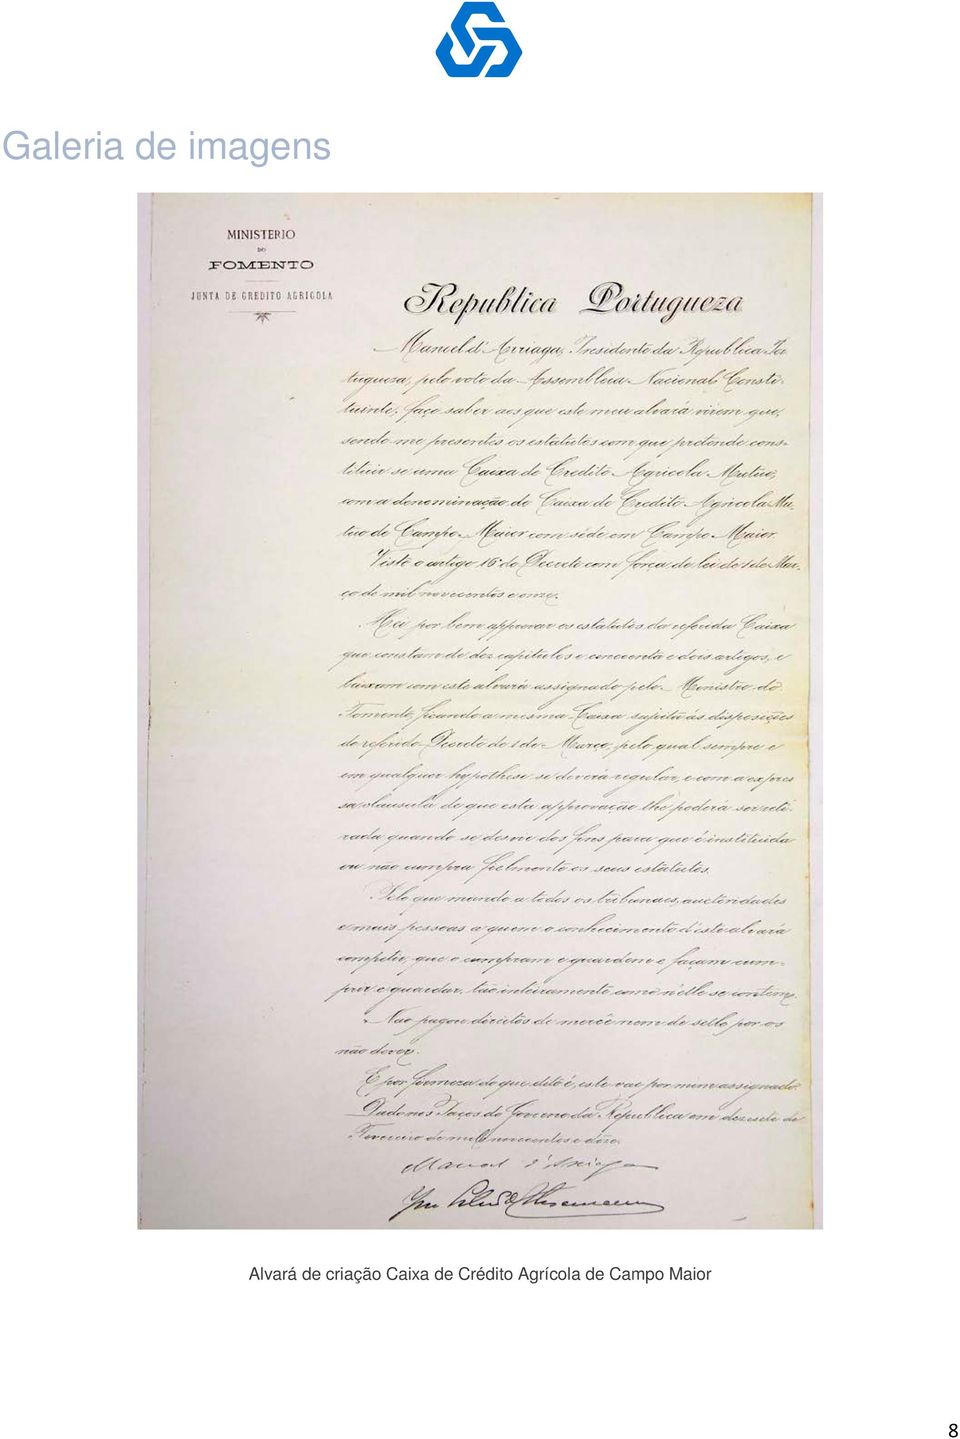 Galeria de imagens
MINISTERIO
DO
FOMENTO
JUNTA DE CREDITO AGRICOLA
Republica Portugueza
Manoel d'Arriaga, Presidente da Republica Por
tugueza, pelo voto da Assembleia Nacional Consti-
tuinte, faço saber aos que este meu alvará virem que,
sendo me presentes os estatutos com que pretende cons-
tituir se uma Caixa de Credito Agricola Mutuo,
com a denominação de Caixa de Credito Agricola Mu-
tuo de Campo Maior com séde em Campo Maior.
Visto o artigo 16º do Decreto com força de lei de 1 de Mar-
ço de mil novecentos e onze.
Hei por bem approvar os estatutos da referida Caixa
que constam de dez capitulos e cincoenta e dois artigos, e
baixam com este alvará assignado pelo Ministro do
Fomento, ficando a mesma Caixa sujeita ás disposições
do referido Decreto de 1 de Março, pelo qual sempre e
em qualquer hypothese se deverá regular, e com a expres
sa clausula de que esta approvação lhe poderá ser reti-
rada quando se desvie dos fins para que é instituida
ou não cumpra fielmente os seus estatutos.
Pelo que mando a todos os tribunaes, auctoridades
e mais pessoas a quem o conhecimento d'este alvará
competir, que o cumpram e guardem e façam cum-
prir e guardar, tão inteiramente como n'elle se contem.
Não pagou direitos de mercê nem de sello por os
não dever.
E por firmeza do que dito é, este vae por mim assignado.
Dado nos Paços do Governo da Republica em dezesete de
Fevereiro de mil novecentos e doze.
Manoel d'Arriaga
Alvará de criação Caixa de Crédito Agrícola de Campo Maior
8